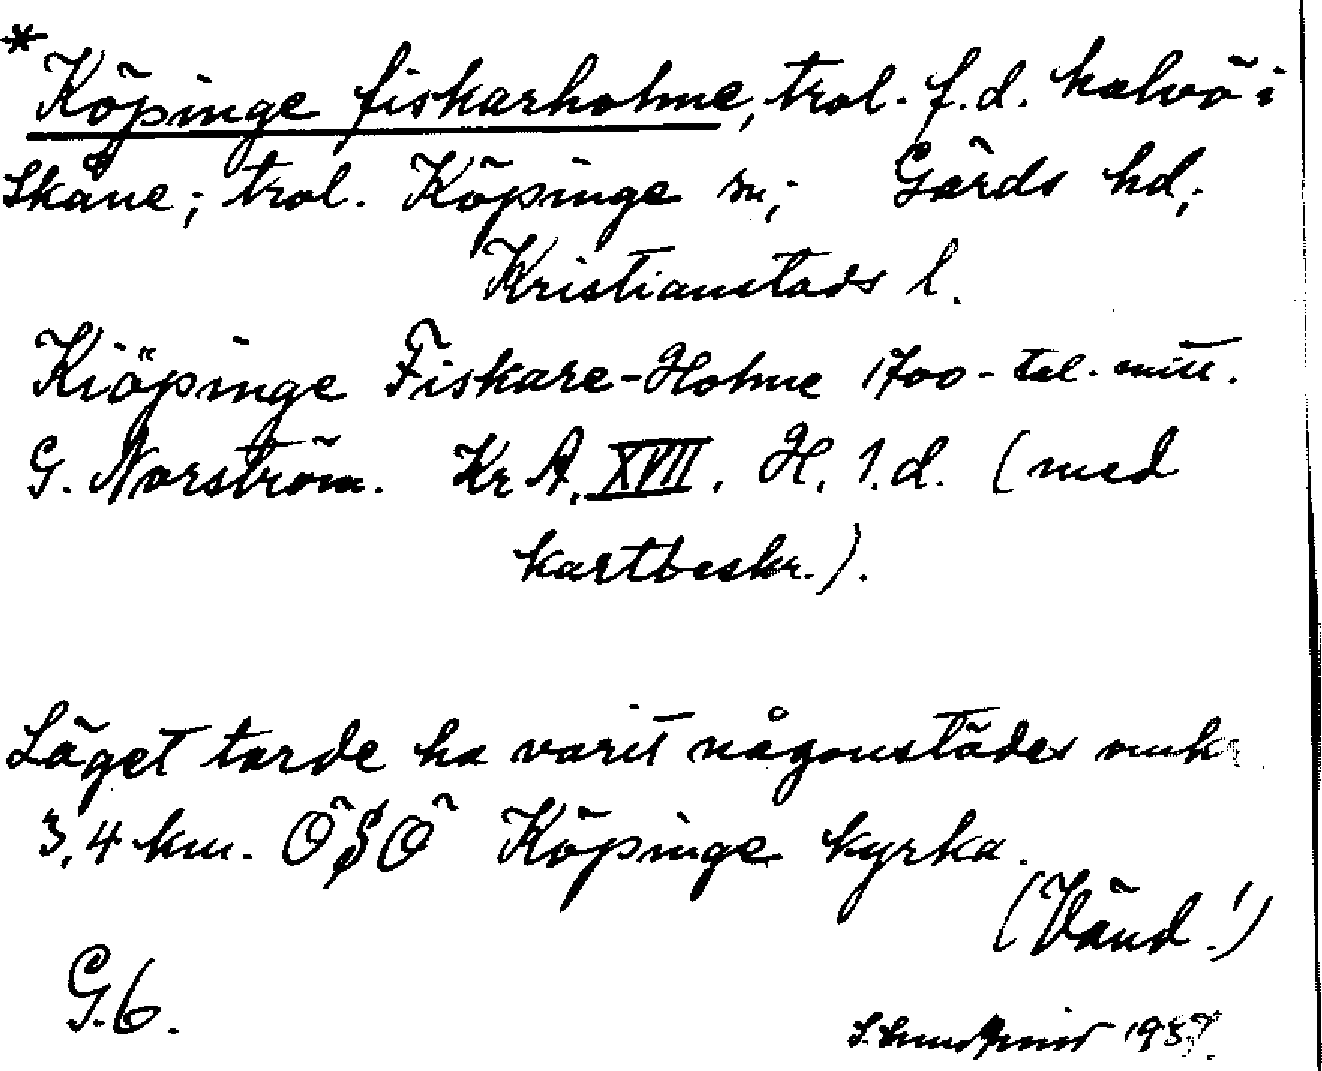 * Köpinge fiskarholme, trol. f.d. halvö i
Skåne; trol. Köpinge sn; Gärds hd;
Kristianstads l.
Kiöpinge Fiskare-Holme 1700-tal. mitt.
G. Norström. Kr A. XVII. H. 1. d. (med
kartbeskr.).
Läget torde ha varit någonstädes omkr
3,4 km. ÖSÖ Köpinge kyrka.
(Vänd!)
G. 6.